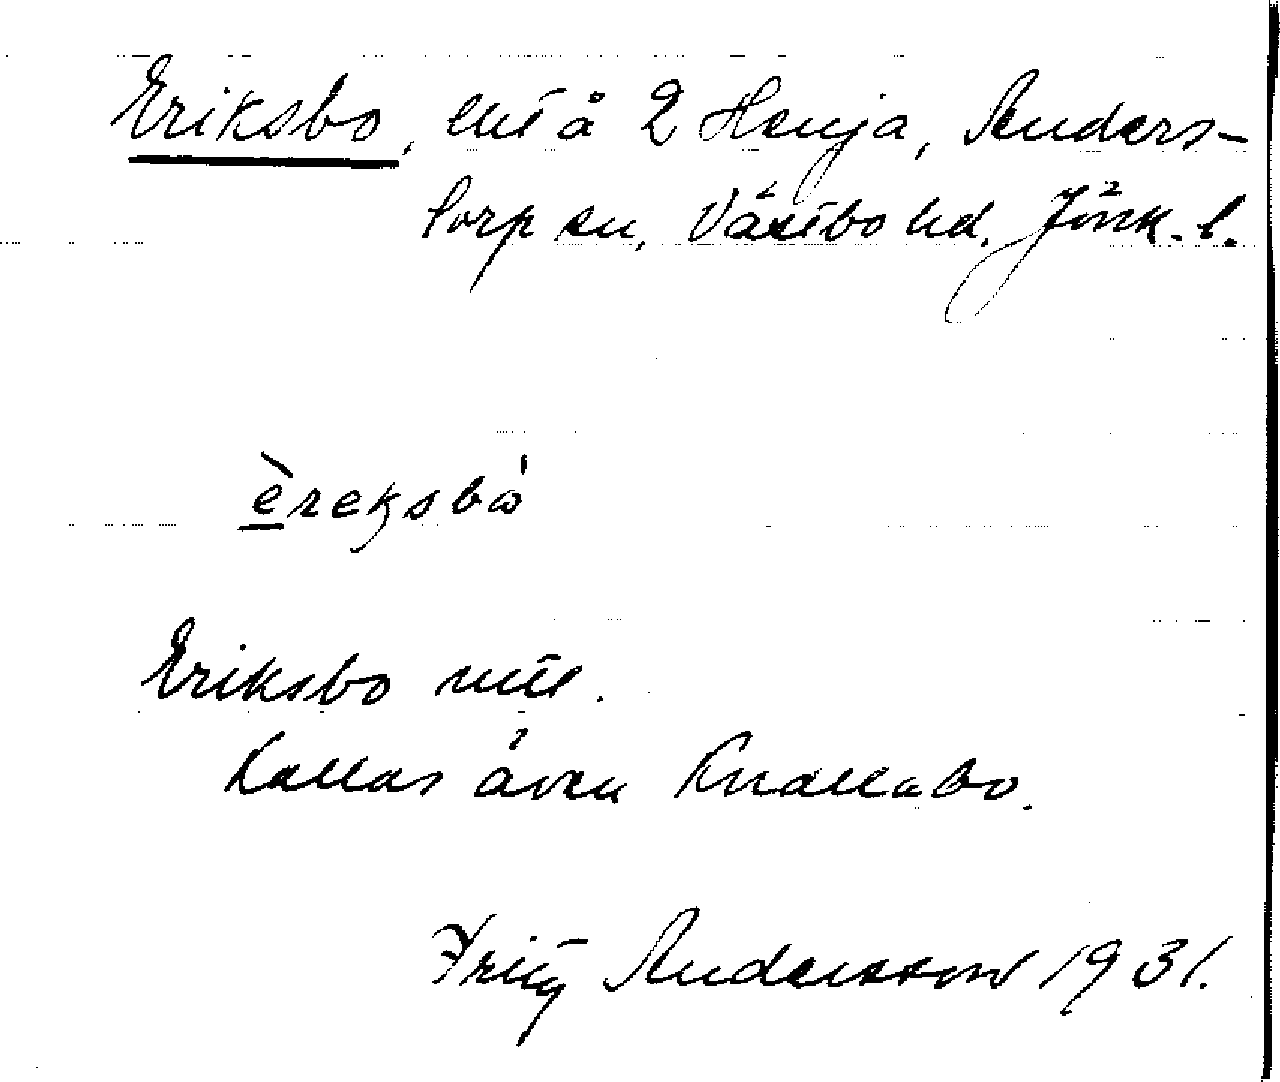 Eriksbo, lht å 2 Henja, Anders-
torp sn, Västbo hd. Jönk. l.
èreksbó
Eriksbo mtl.
Kallas även Knallabo.
Fritz Andersson 1931.